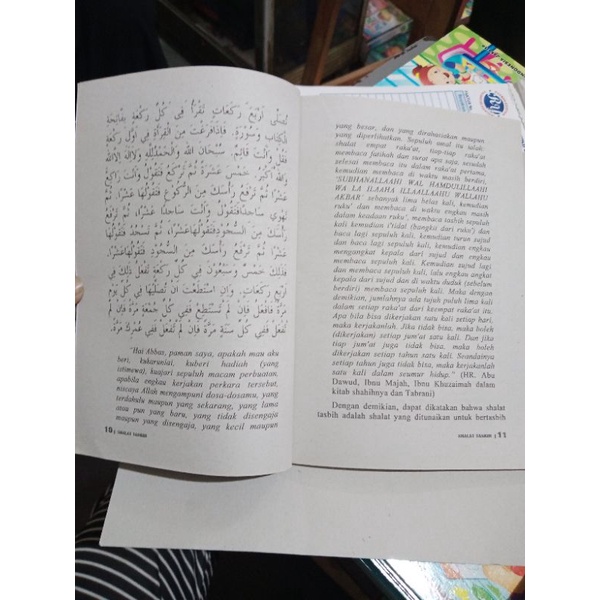 تُصَلِّى أَرْبَعَ رَكَعَاتٍ تَقْرَأُ فِى كُلِّ رَكْعَةٍ بِفَاتِحَةِ
الْكِتَابِ وَسُوْرَةٍ. فَإِذَا فَرَغْتَ مِنَ الْقِرَأَةِ فِى أَوَّلِ رَكْعَةٍ
فَقُلْ وَأَنْتَ قَائِمٌ: سُبْحَانَ اللهِ وَالْحَمْدُ لِلّٰهِ وَلَا إِلٰهَ إِلَّا اللهُ
وَاللهُ أَكْبَرُ. خَمْسَ عَشْرَةَ مَرَّةً ثُمَّ تَرْكَعُ فَتَقُوْلُهَا وَأَنْتَ رَاكِعٌ
عَشْرًا ثُمَّ تَرْفَعُ رَأْسَكَ مِنَ الرُّكُوْعِ فَتَقُوْلُهَا عَشْرًا. ثُمَّ
تَهْوِي سَاجِدًا فَتَقُوْلُ وَأَنْتَ سَاجِدًا عَشْرًا، ثُمَّ تَرْفَعُ
رَأْسَكَ مِنَ السُّجُوْدِ فَتَقُوْلُهَا عَشْرًا، ثُمَّ تَسْجُدُ فَتَقُوْلُهَا
عَشْرًا ثُمَّ تَرْفَعُ رَأْسَكَ مِنَ السُّجُوْدِ فَتَقُوْلُهَا عَشْرًا.
فَذٰلِكَ خَمْسٌ وَسَبْعُوْنَ فِى كُلِّ رَكْعَةٍ تَفْعَلُ ذٰلِكَ فِى
أَرْبَعِ رَكَعَاتٍ. وَإِنِ اسْتَطَعْتَ أَنْ تُصَلِّيَهَا فِى كُلِّ يَوْمٍ
مَرَّةً فَافْعَلْ فَإِنْ لَمْ تَسْتَطِعْ فَفِى كُلِّ جُمْعَةٍ مَرَّةً فَإِنْ لَمْ
تَفْعَلْ فَفِى كُلِّ سَنَةٍ مَرَّةً فَإِنْ لَمْ تَفْعَلْ فَفِى عُمُرِكَ مَرَّةً.
"Hai Abbas, paman saya, apakah mau aku
beri, kukaruniai, kuberi hadiah (yang
istimewa), kuajari sepuluh macam perbuatan,
apabila engkau kerjakan perkara tersebut,
niscaya Allah mengampuni dosa-dosamu, yang
terdahulu maupun yang sekarang, yang lama
atau pun yang baru, yang tidak disengaja
maupun yang disengaja, yang kecil maupun
10 | SHALAT TASBIH
yang besar, dan yang dirahasiakan maupun
yang diperlihatkan. Sepuluh amal itu ialah:
shalat empat raka'at, tiap-tiap raka'at
membaca fatihah dan surat apa saja, sesudah
selesai membaca itu dalam raka'at pertama,
kemudian di waktu masih berdiri,
'SUBHANALLAAHI WAL HAMDULILLAAHI
WA LA ILAAHA ILLAALLAAHU WALLAHU
AKBAR' sebanyak lima belas kali, kemudian
ruku' dan membaca di waktu engkau masih
dalam keadaan ruku', membaca tasbih sepuluh
kali kemudian i'tidal (bangkit dari ruku') dan
baca lagi sepuluh kali, kemudian turun sujud
dan baca lagi sepuluh kali, kemudian engkau
mengangkat kepala dari sujud dan engkau
membaca sepuluh kali. Kemudian sujud lagi
dan membaca sepuluh kali, lalu engkau angkat
kepala dari sujud dan di waktu duduk (sebelum
berdiri) membaca sepuluh kali. Maka dengan
demikian, jumlahnya ada tujuh puluh lima kali
dalam tiap raka'at dari keempat raka'at itu.
Apa bila bisa dikerjakan satu kali setiap hari,
maka kerjakanlah. Jika tidak bisa, maka boleh
(dikerjakan) setiap jum'at satu kali. Dan jika
tiap jum'at juga tidak bisa, maka boleh
dikerjakan setiap tahun satu kali. Seandainya
setiap tahun juga tidak bisa, maka kerjakanlah
satu kali dalam seumur hidup." (HR. Abu
Dawud, Ibnu Majah, Ibnu Khuzaimah dalam
kitab shahihnya dan Tabrani)
Dengan demikian, dapat dikatakan bahwa shalat
tasbih adalah shalat yang ditunaikan untuk bertasbih
SHALAT TASBIH | 11